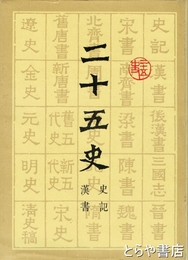 二十五史
史記
漢書
史記
漢書
後漢書
三國志
晉書
宋書
南齊書
梁書
陳書
魏書
北齊書
舊唐書
新唐書
舊五代史
新五代史
宋史
遼史
金史
元史
明史
清史稿
とらや書店